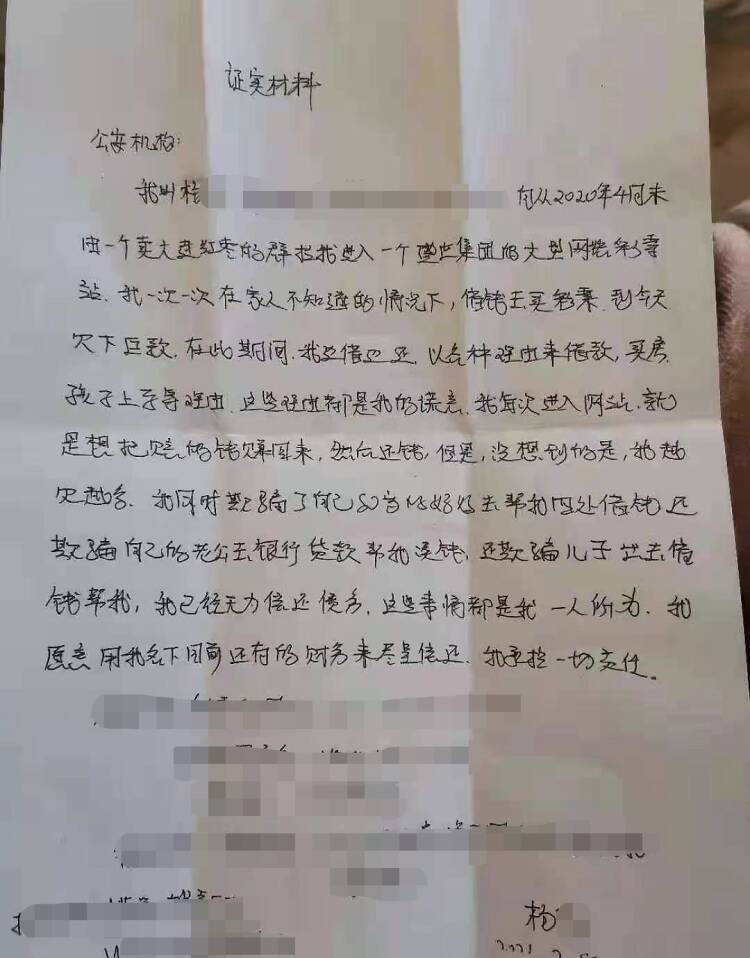 证实材料
公安机构:
我叫杨 自从2020年4月末
由一个卖大连红枣的群拉我进入一个 集团的大型网络彩票
站.我一次一次在家人不知道的情况下,借钱去买彩票.到今天
欠下巨款.在此期间.我边借边还.以各种理由来借款,买房.
孩子上学等理由.这些理由都是我的谎言.我每次进入网站.就
是想把输的钱赚回来,然后还钱,但是,没想到的是,我越
欠越多.我同时欺骗了自己80岁 去帮我四处借钱还
欺骗自己的老公去银行贷款帮我 钱,还欺骗儿子出去借
钱帮我,我已经无力偿还债务.这些事情都是我一人所为.我
愿意用我名下目前还有的财务来尽量偿还.我承担一切责任。
杨